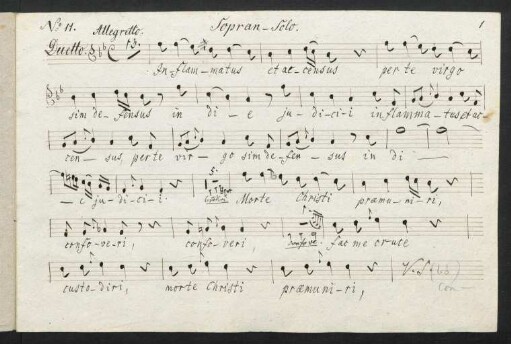 No. 11. Allegretto. Sopran-Solo. 1
Duetto. 13.
In-flam-matus et ac-census per te virgo
sim de-fensus in di-e ju-di-ci-i inflamma-tus et ac-
cen-sus, per te vir-go sim de-fen-sus in di-
-e ju-di-ci-i. 5. Morte Christi præmu-ni-ri,
confo-ve-ri, confo-veri, 1. fac me cruce
custo-diri, morte Christi præmuni-ri, V. S.
con-